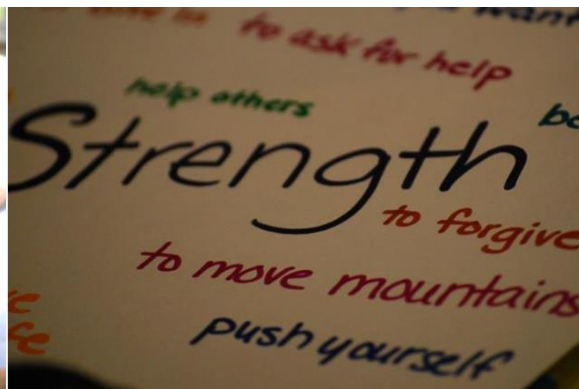 want
to ask for help
help others
Strength
to forgive
to move mountains
push yourself